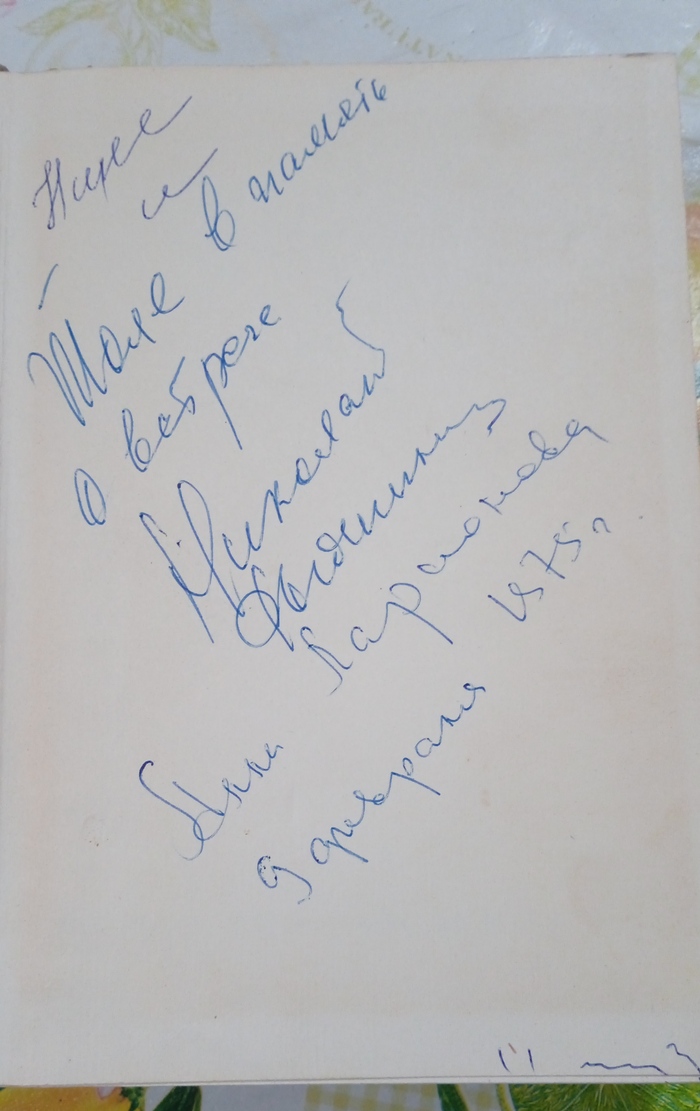 Нине
и
Толе в память
о встрече
Николай
Ларионова
Анна
9 февраля 1975 г